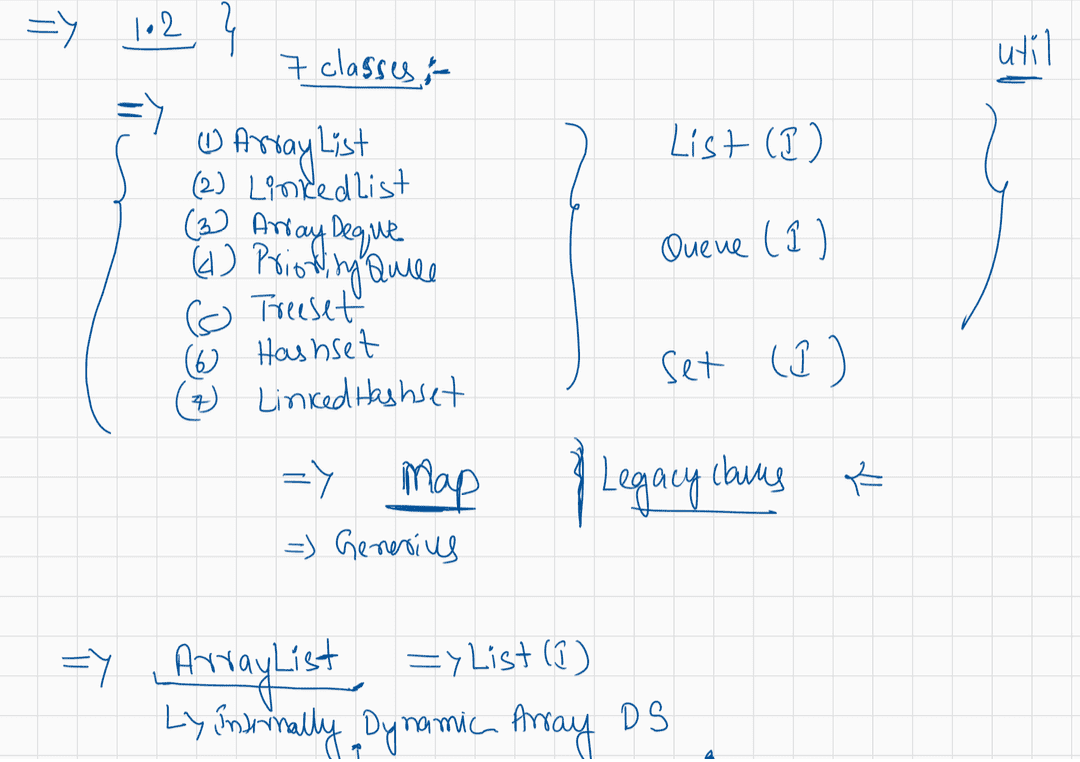 => 1.2 }
util
7 classes :-
=>
(1) ArrayList
(2) LinkedList
(3) ArrayDeque
(4) PriorityQueue
(5) TreeSet
(6) Hashset
(7) LinkedHashset
List (I)
Queue (I)
Set (I)
=> Map } Legacy classes <=
=> Generics
=> ArrayList => List (I)
L> internally Dynamic Array DS